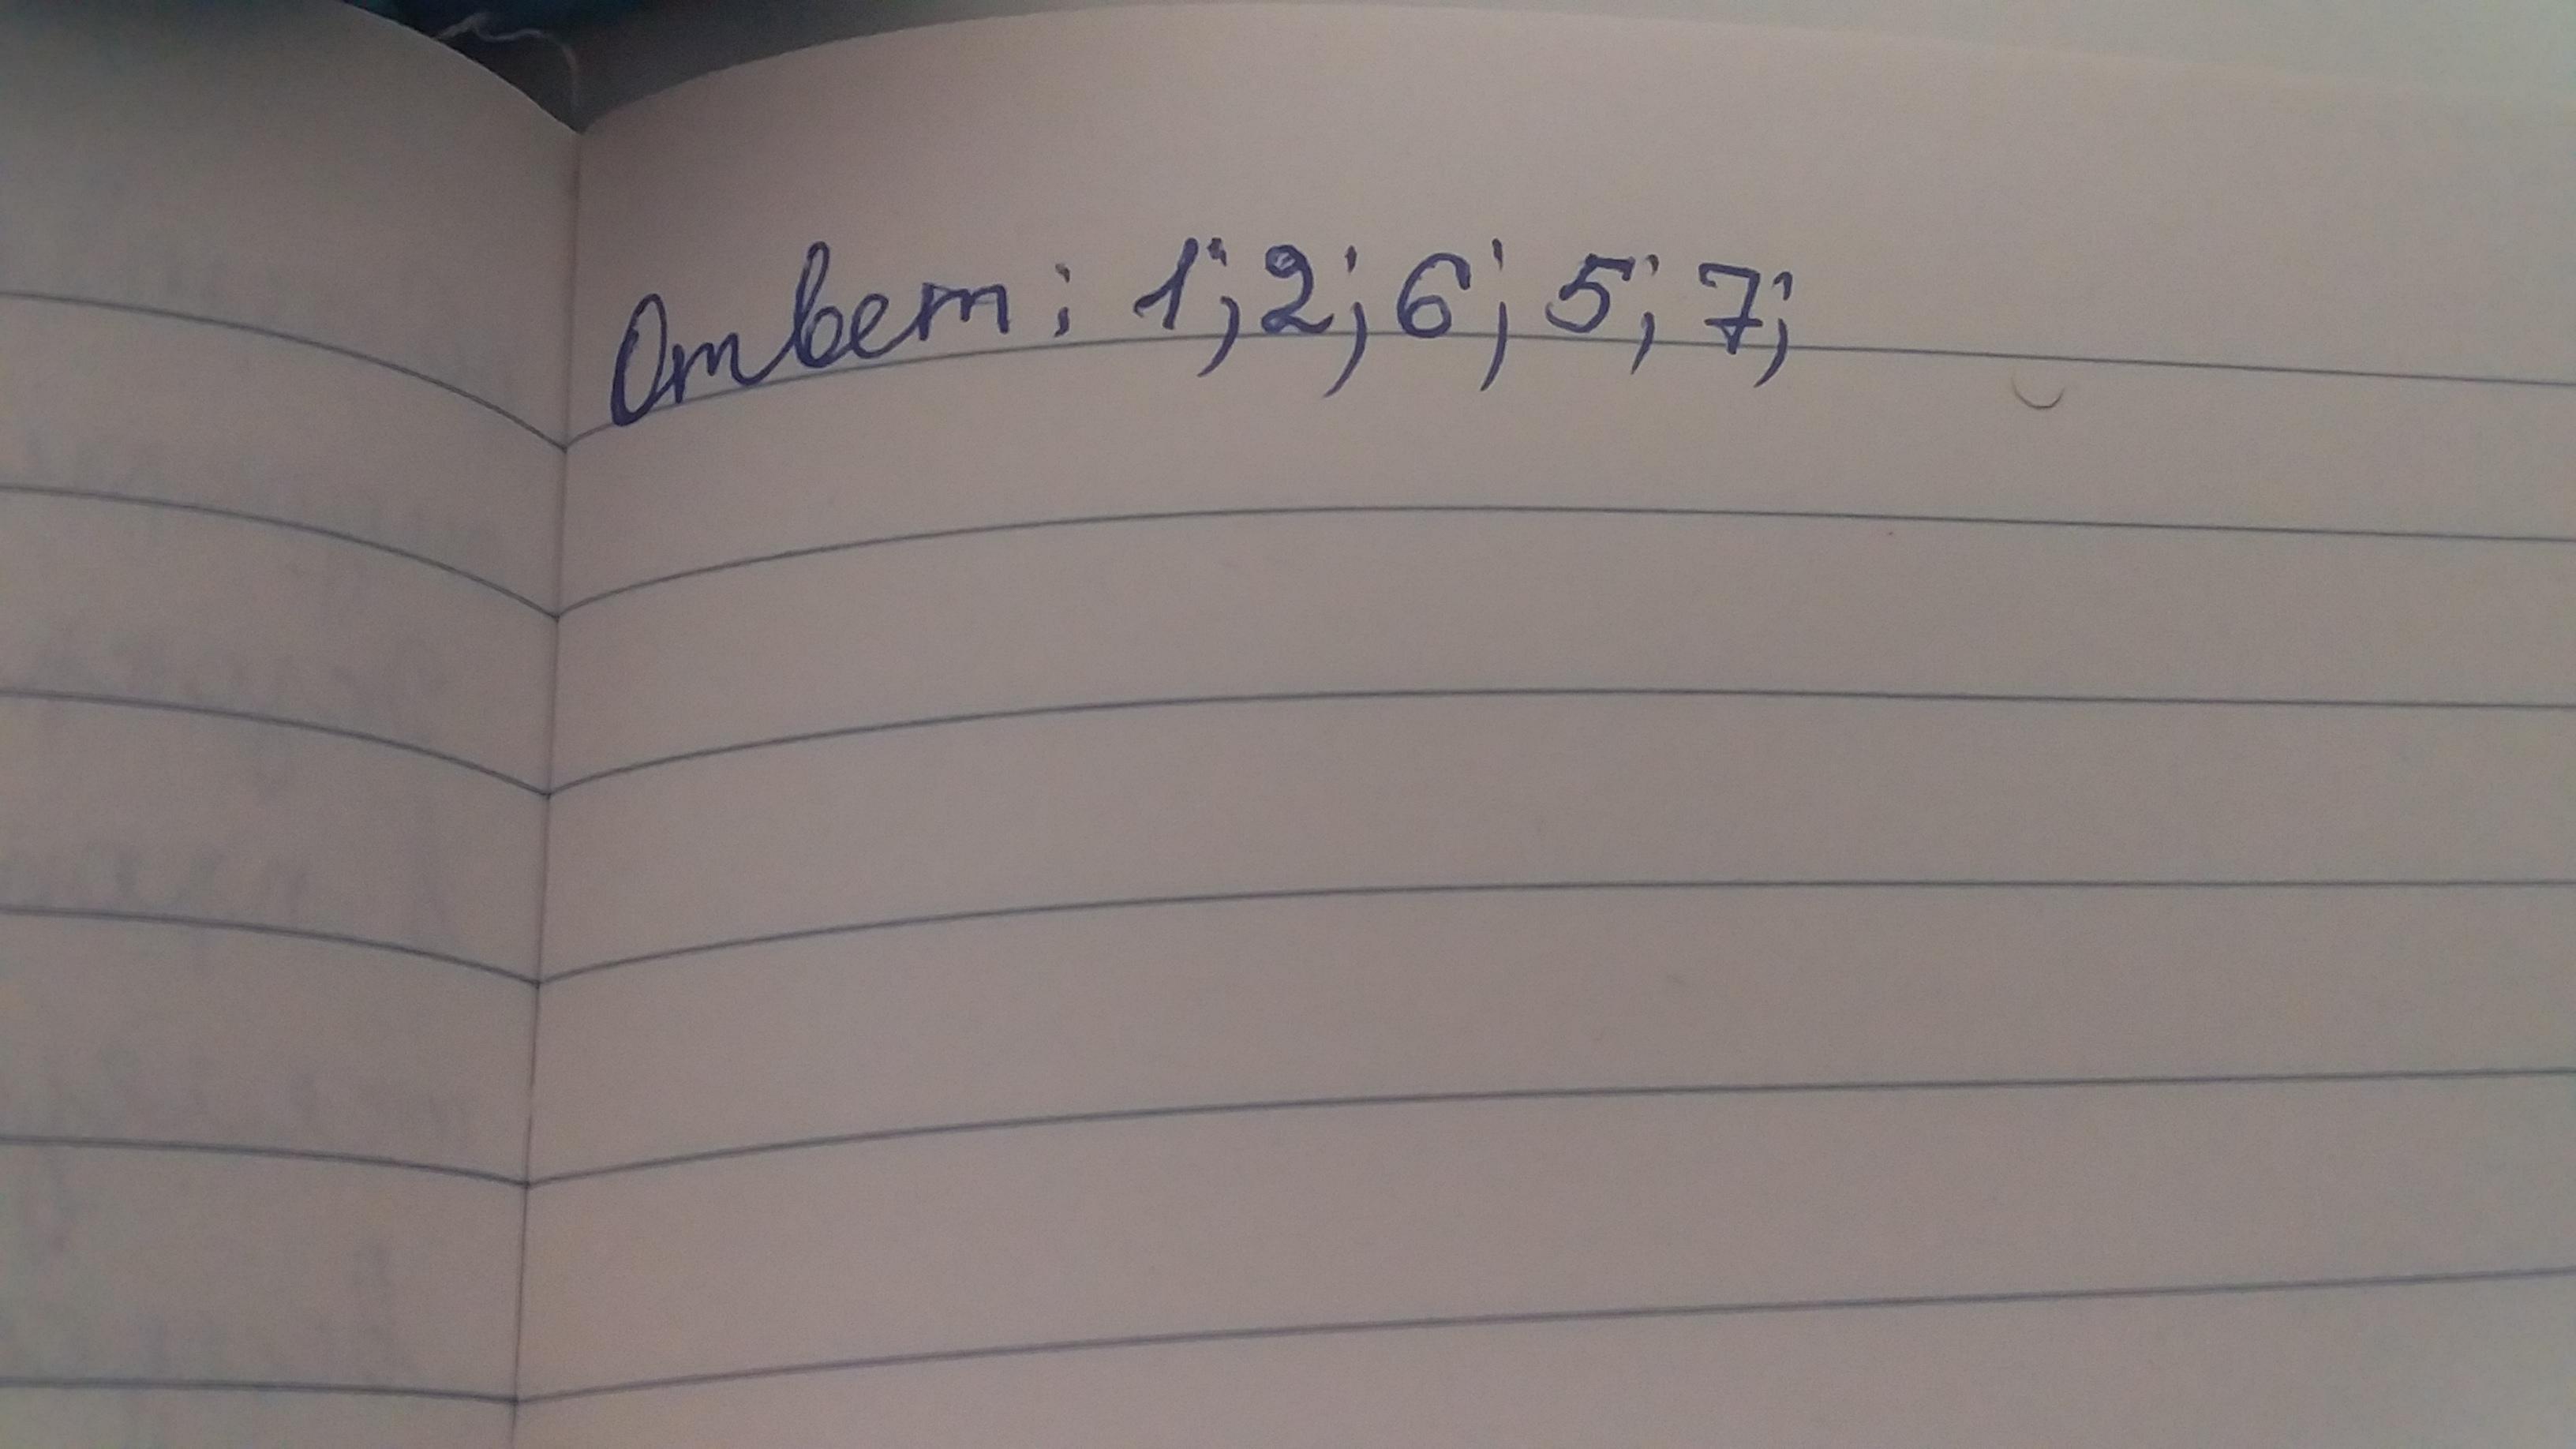 Ответ: 1; 2; 6; 5; 7;